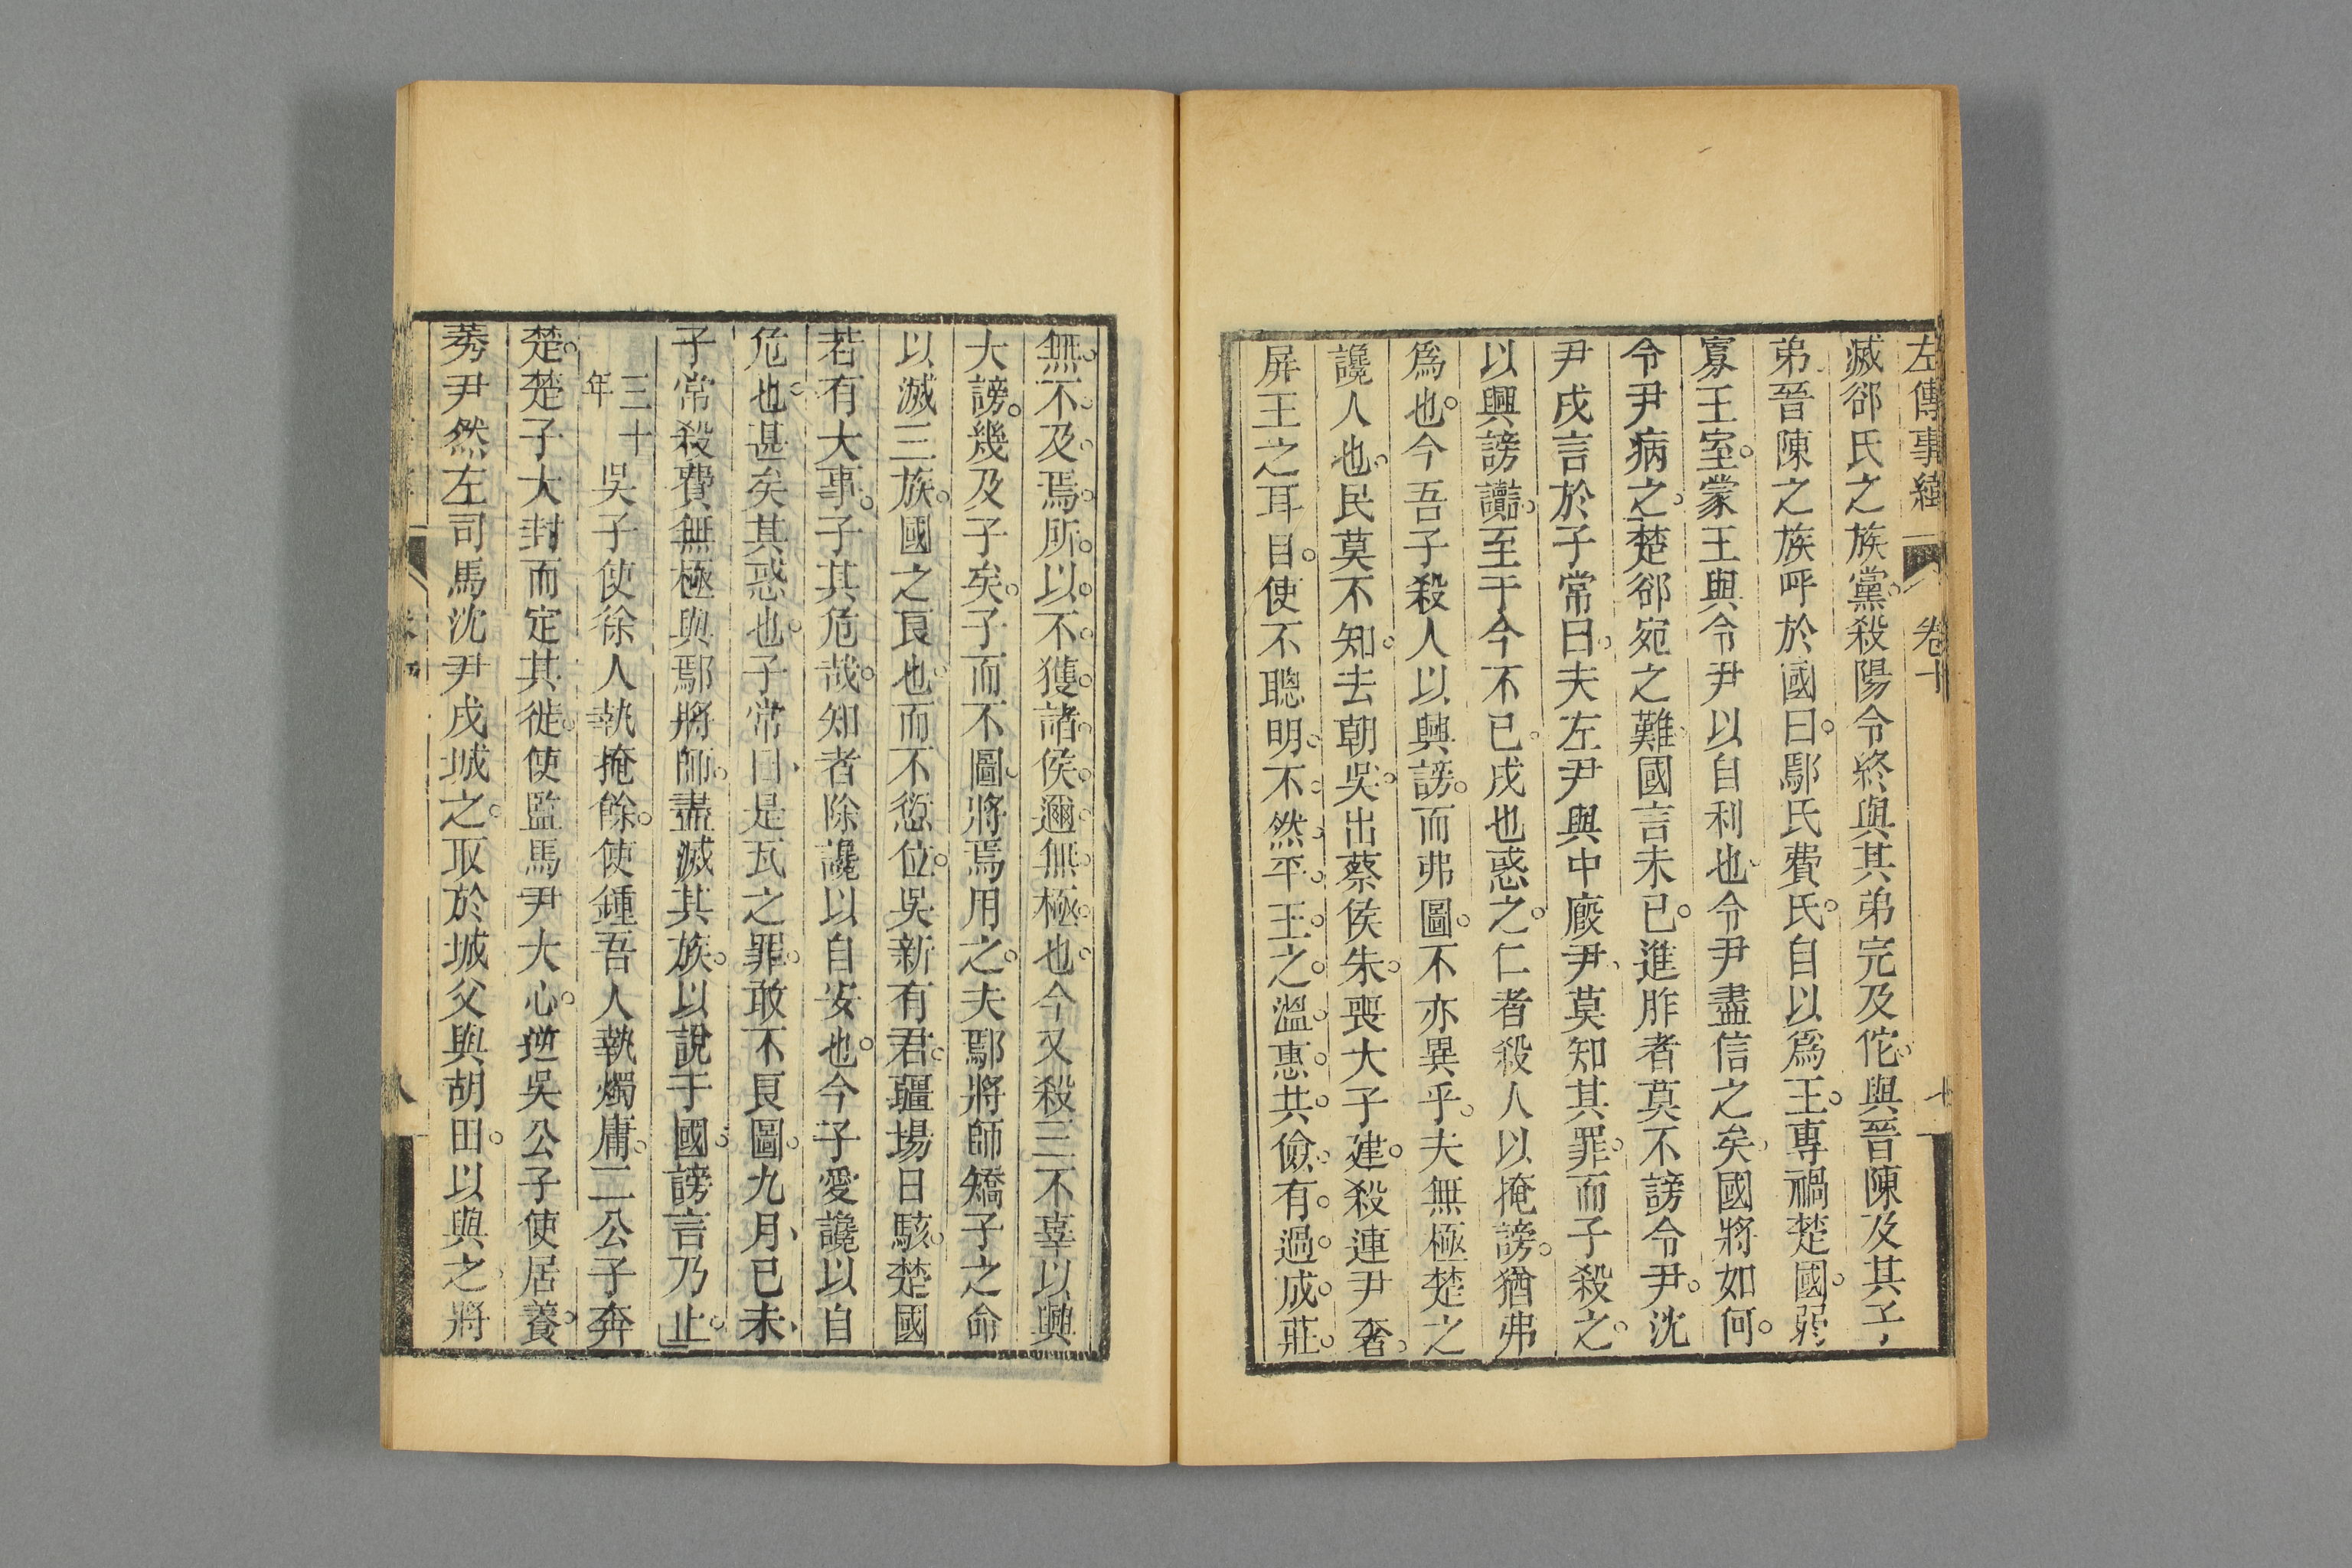 左傳事緯 卷十
滅郤氏之族黨。殺陽令終與其弟完及佗。與晉陳及其子、
弟。晉陳之族呼於國曰。鄢氏費氏。自以爲王。專禍楚國。弱
寡王室。蒙王與令尹以自利也。令尹盡信之矣。國將如何。
令尹病之。楚郤宛之難。國言未已。進胙者莫不謗令尹。沈
尹戌言於子常曰。夫左尹與中廏尹。莫知其罪。而子殺之。
以興謗讟。至于今不已。戌也惑之。仁者殺人以掩謗。猶弗
爲也。今吾子殺人以興謗。而弗圖。不亦異乎。夫無極楚之
讒人也。民莫不知。去朝吳。出蔡侯朱。喪大子建。殺連尹奢。
屏王之耳目。使不聰明。不然。平。王。之。溫。惠。共。儉。有。過。成。莊。
無。不。及。焉。所。以。不。獲。諸。侯。邇。無。極。也。今又殺三不辜以興
大謗。幾及子矣。子而不圖。將焉用之。夫鄢將師矯子之命
以滅三族。國之良也。而不愆位。吳新有君。疆場日駭。楚國
若有大事。子其危哉。知者除讒以自安也。今子愛讒以自
危也。甚矣其惑也。子常曰、是瓦之罪。敢不良圖。九月、己未、
子常殺費無極與鄢將師。盡滅其族。以說于國。謗言乃止。
三十年 吳子使徐人執掩餘。使鍾吾人執燭庸。二公子奔
楚。楚子大封而定其徙。使監馬尹大心。逆吳公子使居養。
莠尹然左司馬沈尹戌城之。取於城父與胡田。以與之、將